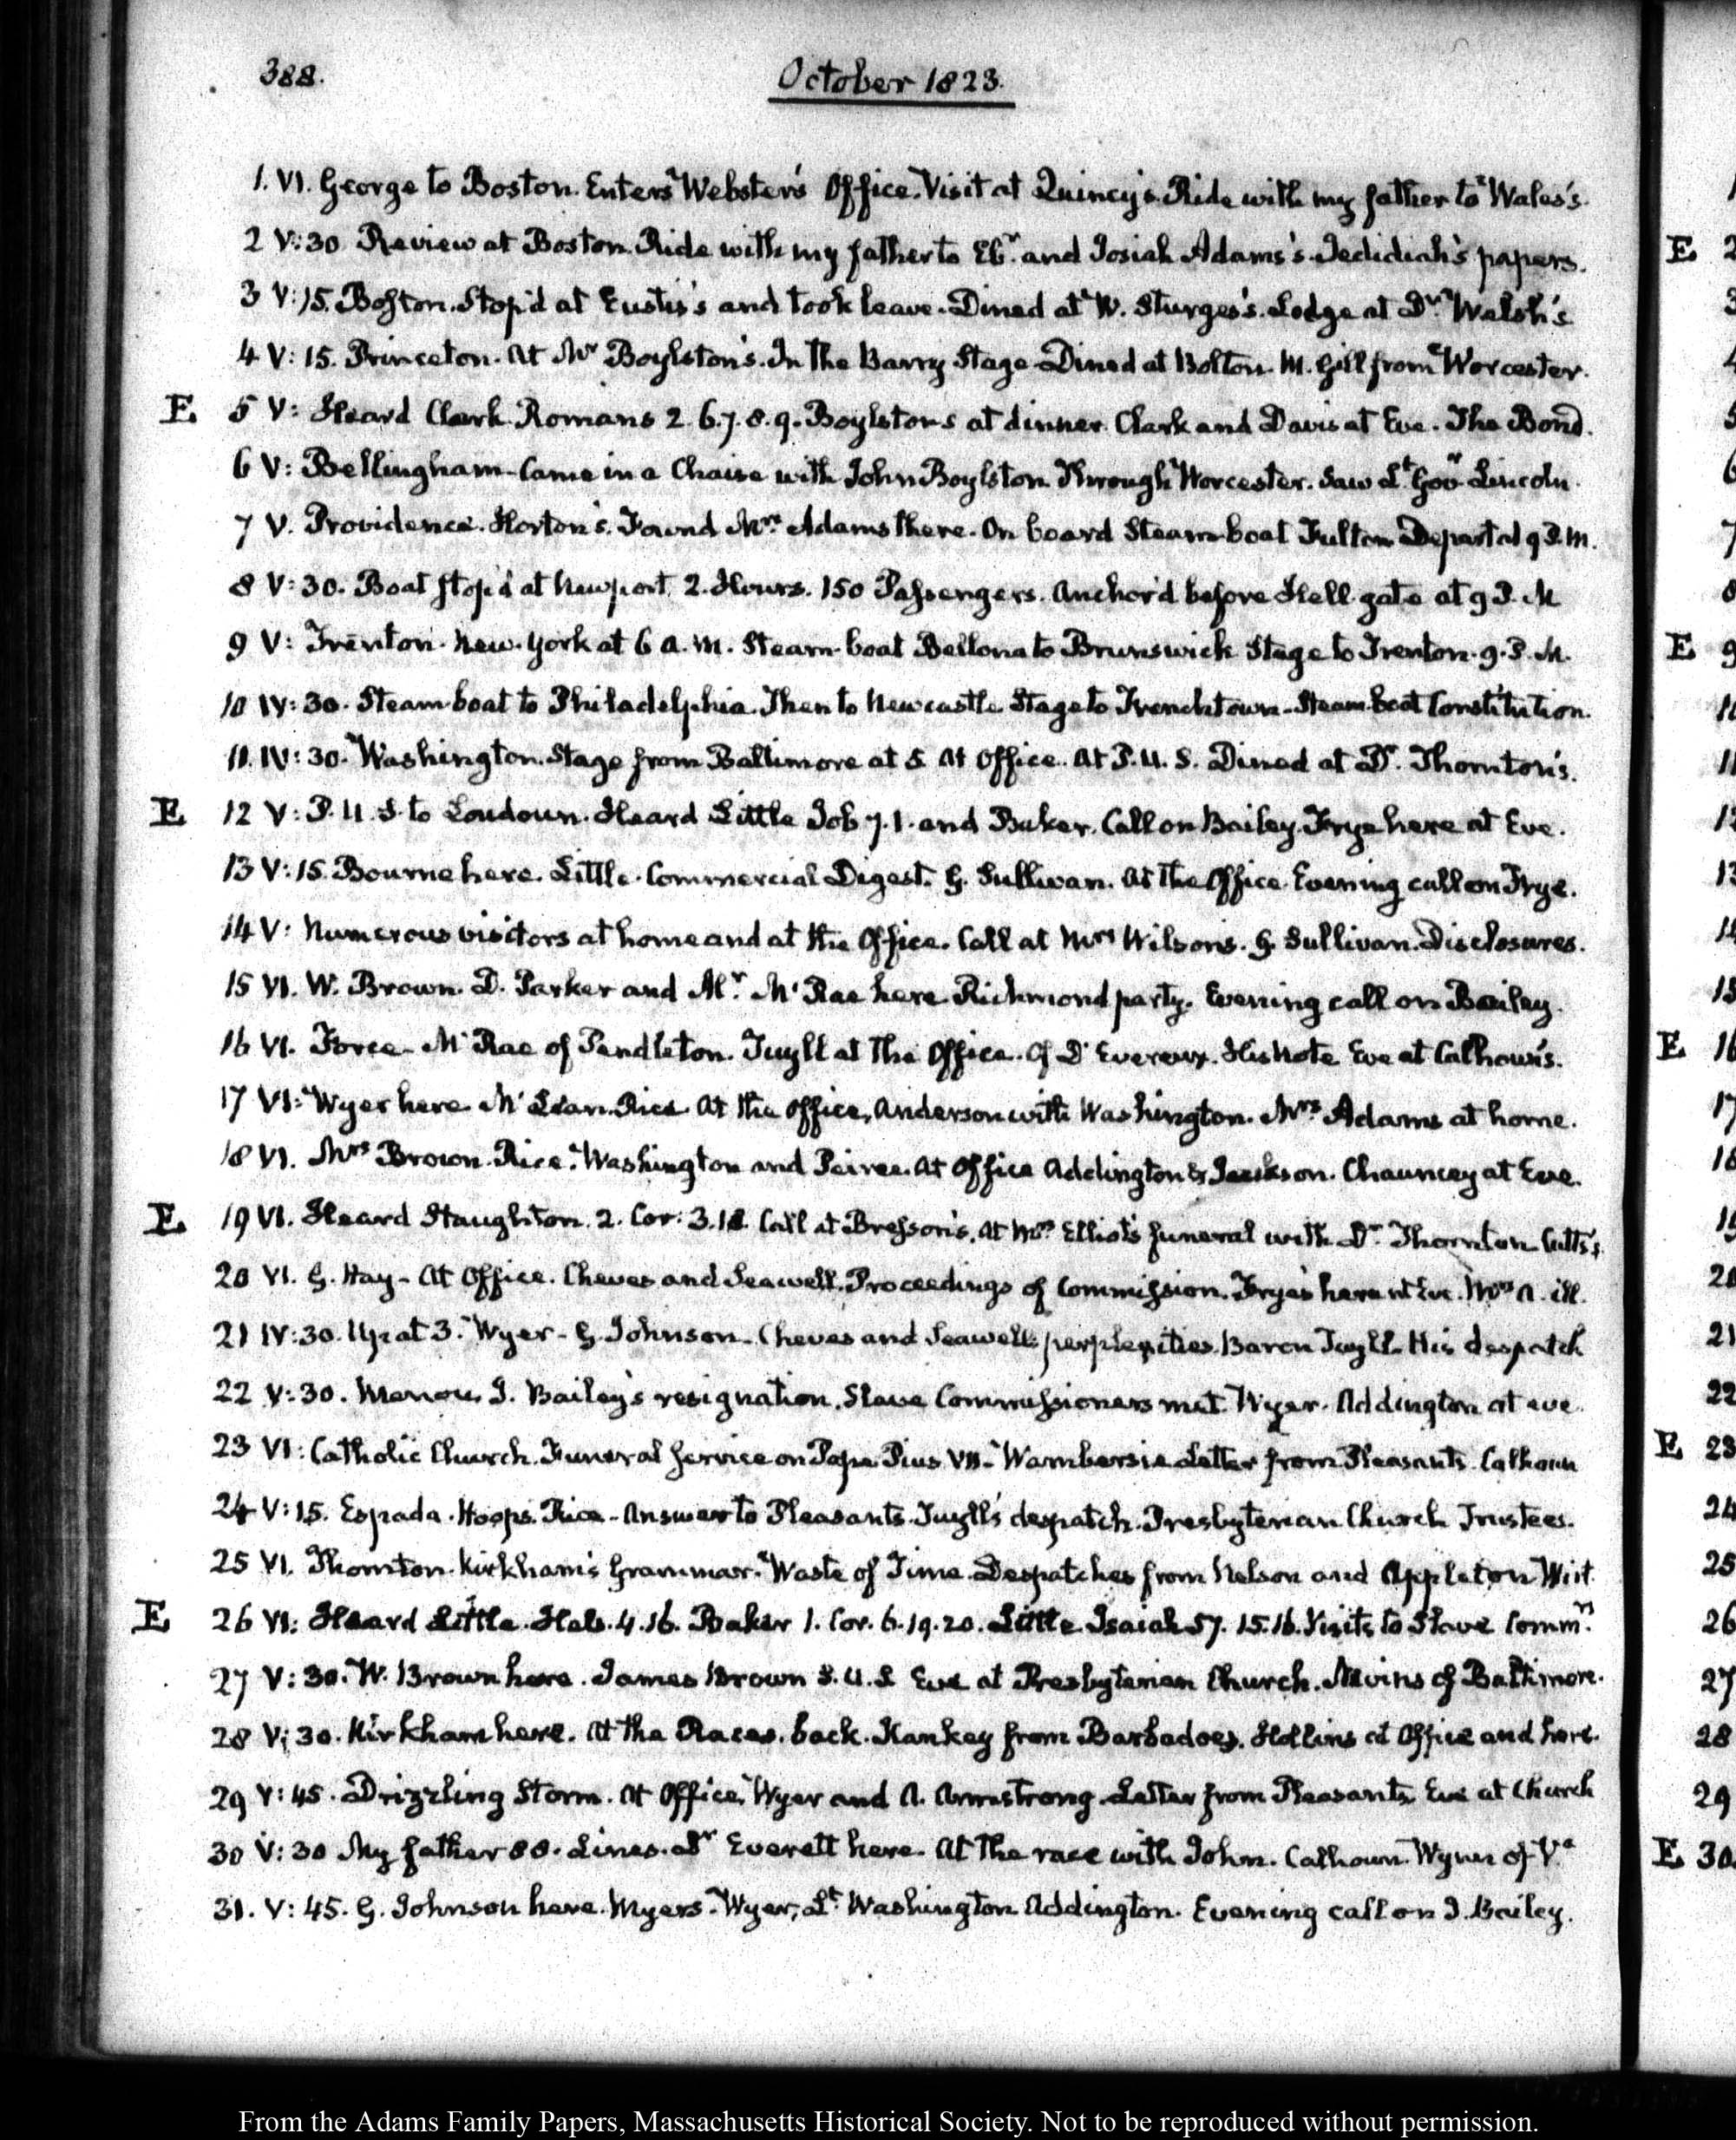 388.
October 1823.
1. VI. George to Boston. Enters Webster's Office. Visit at Quincy's. Ride with my father to Wales's.
2 V:30 Review at Boston. Ride with my father to Ebr. and Josiah Adams's. Jedidiah's papers.
3 V:15. Boston. Stop'd at Eustis's and took leave. Dined at W. Sturges's. Lodge at Dr. Welsh's
4 V:15. Princeton. At Mr Boylston's. In the Barry Stage. Dined at Bolton. M. Gill from Worcester.
E 5 V: Heard Clark. Romans 2. 6.7.8.9. Boylstons at dinner. Clark and Davis at Eve. The Bond.
6 V: Bellingham. Came in a Chaise with John Boylston. Through Worcester. Saw Lt. Govr Lincoln.
7 V. Providence. Horton's. Found Mrs. Adams there. On board Steam-boat Fulton. Departed 9 P.M.
8 V:30. Boat stop'd at Newport. 2. Hours. 150 Passengers. Anchor'd before Hell-gate at 9 P.M
9 V: Trenton. New-York at 6 A.M. Steam-boat Bellona to Brunswick Stage to Trenton. 9. P.M.
10 IV:30. Steam-boat to Philadelphia. Then to Newcastle. Stage to Frenchtown. Steam-boat Constitution.
11. IV:30. Washington. Stage from Baltimore at 5. At Office. At P.U.S. Dined at Dr. Thornton's.
E 12 V: P.U.S. to Loudoun. Heard Little Job 7.1. and Baker. Call on Bailey. Frye here at Eve.
13 V:15. Bourne here. Little. Commercial Digest. G. Sullivan. At the Office. Evening call on Frye.
14 V: Numerous visitors at home and at the Office. Call at Mrs Wilson's. G. Sullivan. Disclosures.
15 VI. W. Brown. D. Parker and Mr. McRae here. Richmond party. Evening call on Bailey.
16 VI. Force. McRae of Pendleton. Tuyll at the Office. Of D'Evereux. His Note. Eve at Calhoun's.
17 VI: Wyer here. McLean. Rice. At the office, Anderson with Washington. Mrs Adams at home.
18 VI. Mrs Brown. Rice. Washington and Peirce. At Office Addington & Jackson. Chauncey at Eve.
E 19 VI. Heard Staughton. 2. Cor: 3.18. Call at Bresson's. At Mrs Elliot's funeral with Dr. Thornton. Cutts's
20 VI. G. Hay. At Office. Cheves and Seawell. Proceedings of Commission. Fryes here at Eve. Mrs A. ill.
21 IV:30. Up at 3. Wyer. G. Johnson. Cheves and Seawell's perplexities. Baron Tuyll. His despatch
22 V:30. J. Bailey's resignation. Slave Commissioners met. Wyer. Addington at eve.
23 VI: Catholic Church. Funeral Service on Pope Pius VII. Wambersie. Letter from Pleasants. Calhoun
24 V:15. Espada. Hoops. Rice. Answer to Pleasants. Tuyll's despatch. Presbyterian Church Trustees.
25 VI. Thornton. Kirkham's Grammar. Waste of Time. Despatches from Nelson and Appleton. Wirt.
E 26 VI: Heard Little. Heb. 4.16. Baker 1. Cor. 6.19.20. Little Isaiah 57. 15.16. Visits to Slave Commrs.
27 V:30. W. Brown here. James Brown S.U.S. Eve at Presbyterian Church. Nevins of Baltimore.
28 V:30. Kirkham here. At the Races. back. Kankey from Barbadoes. Hollins at Office and here.
29 V:45. Drizzling Storm. At Office. Wyer and A. Armstrong. Letter from Pleasants. Eve at Church
30 V:30 My father 88. Lines. Dr Everett here. At the race with John. Calhoun. Wynn of Va
31. V:45. G. Johnson here. Myers. Wyer, Lt. Washington. Addington. Evening call on J. Bailey.
From the Adams Family Papers, Massachusetts Historical Society. Not to be reproduced without permission.